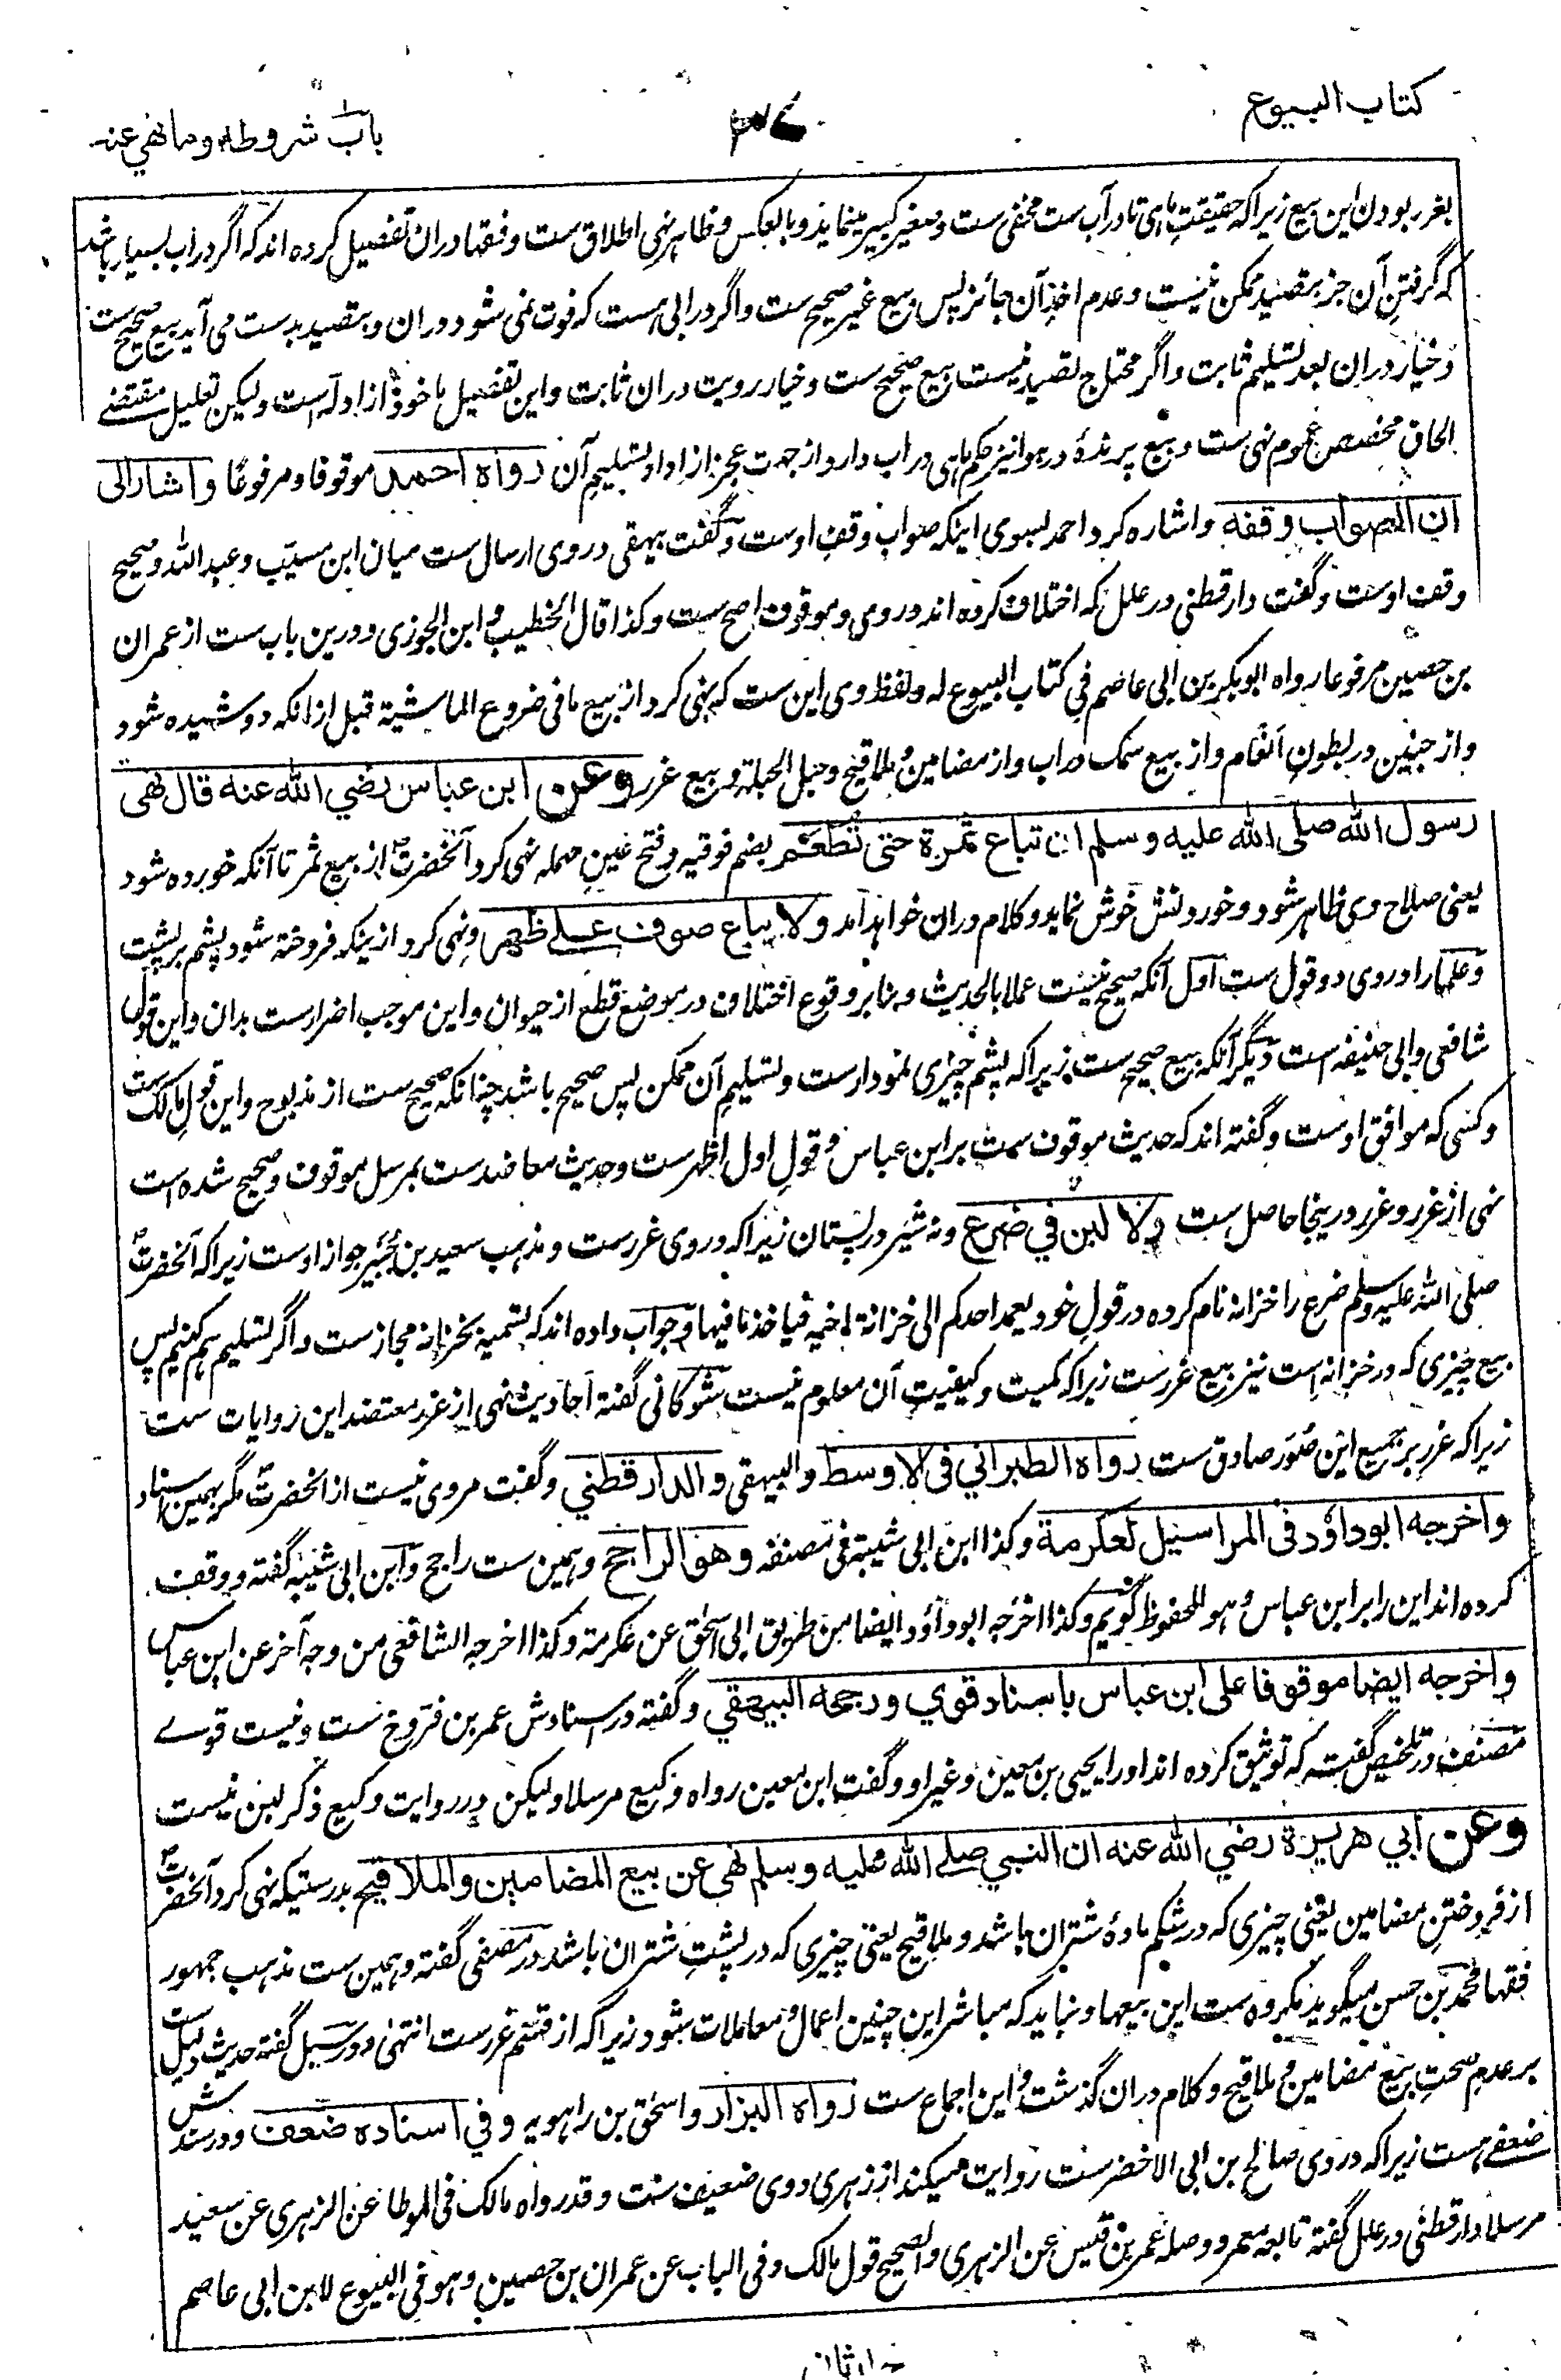 کتاب البیوع
باب شروطه وما نهي عنه
بغرر بودن این بیع زیرا که حقیقت ماهی تا در آب ست مخفی ست و صغیر کبیر مینماید و بالعکس و ظاهر نهی اطلاق ست و فقها دران تفصیل کرده اند که اگر در آب بسیار باشد
که گرفتن آن جز بتصید ممکن نیست و عدم اخذ آن جائز پس بیع غیر صحیح ست و اگر در آبی ست که فوت نمی شود دران و بتصید بدست می آید بیع صحیح ست
و خیار دران بعد تسلیم ثابت و اگر محتاج تصید نیست بیع صحیح ست و خیار رویت دران ثابت و این تفصیل ماخوذ از ادله است ولیکن تعلیل مقتضے
الحاق مخصص عموم نهی ست و بیع پرندهٔ در هوا نیز حکم ماهی در آب دارد از جهت عجز از ادا و تسلیم آن رواه احمد موقوفا و مرفوعا واشار الی
ان الصواب وقفه و اشاره کرد احمد بسوی اینکه صواب وقف اوست و گفت بیهقی در وی ارسال ست میان ابن مسیب و عبد الله و صحیح
وقف اوست و گفت دارقطنی در علل که اختلاف کرده اند در وی و موقوف اصح ست و کذا قال الخطیب و ابن الجوزی و درین باب ست از عمران
بن حصین مرفوعا رواه ابوبکر بن ابی عاصم فی کتاب البیوع له و لفظ وی این ست که نهی کرد از بیع ما فی ضروع الماشیة قبل ازانکه دوشیده شود
و از جنین در بطون انعام و از بیع سمک در آب و از مضامین و ملاقیح و حبل الحبلة و بیع غرر وعن ابن عباس رضي الله عنه قال نهی
رسول الله صلی الله علیه وسلم ان تباع ثمرة حتی تطعم بضم فوقیه و فتح عین مهمله نهی کرد آنحضرت از بیع ثمر تا آنکه خورده شود
یعنی صلاح وی ظاهر شود و خوردنش خوش نماید و کلام دران خواهد آمد ولا یباع صوف علے ظهر و نهی کرد ازینکه فروخته شود پشم بر پشت
و علما را در وی دو قول ست اول آنکه صحیح نیست عملا بالحدیث و بنابر وقوع اختلاف در موضع قطع از حیوان و این موجب اضرار ست بدان و این قول
شافعی و ابی حنیفه است دیگر آنکه بیع صحیح ست زیرا که پشم چیزی نمودار ست و تسلیم آن ممکن پس صحیح باشد چنانکه صحیح ست از مذبوح و این قول مالک ست
و کسی که موافق اوست و گفته اند که حدیث موقوف ست بر ابن عباس و قول اول اظهر ست و حدیث معاضد ست بمرسل موقوف و صحیح شده است
نهی از غرر و غرر درینجا حاصل ست ولا لبن في ضرع و نه شیر در پستان زیرا که در وی غرر ست و مذهب سعید بن جبیر جواز اوست زیرا که آنحضرت
صلی الله علیه وسلم ضرع را خزانه نام کرده در قول خود یعمد احدکم الی خزانة اخیه فیاخذ ما فیها و جواب داده اند که تسمیه بخزانه مجاز ست و اگر تسلیم هم کنیم پس
بیع چیزی که در خزانه است نیز بیع غرر ست زیرا که کمیت و کیفیت آن معلوم نیست شوکانی گفته احادیث نهی از غرر معتضد این روایات ست
زیرا که غرر بر جمیع این صُوَر صادق ست رواه الطبرانی فی الاوسط والبیهقی والدارقطني و گفت مروی نیست از آنحضرت مگر بهمین اسناد
واخرجه ابوداود فی المراسیل لعکرمة و کذا ابن ابی شیبة فی مصنفه وهو الراجح و همین ست راجح و ابن ابی شیبه گفته و وقف
کرده اند این را بر ابن عباس و هو المحفوظ گویم و کذا اخرجه ابوداؤد ایضا من طریق ابی اسحٰق عن عکرمة و کذا اخرجه الشافعی من وجه آخر عن ابن عباس
واخرجه ایضا موقوفا علی ابن عباس باسناد قوي ورجحه البیهقي و گفته در اسنادش عمر بن فروخ ست و نیست قوے
مصنف در تلخیص گفته که توثیق کرده اند او را یحیی بن معین و غیر او و گفت ابن معین رواه وکیع مرسلا ولیکن در روایت وکیع ذکر لبن نیست
وعن ابي هریرة رضي الله عنه ان النبي صلے الله علیه وسلم نهی عن بیع المضامین والملاقیح بدرستیکه نهی کرد آنحضرت
از فروختن مضامین یعنی چیزی که در شکم مادهٔ شتران باشد و ملاقیح یعنی چیزی که در پشت شتران باشد در مصفی گفته و همین ست مذهب جمهور
فقها محمد بن حسن میگوید مکروه ست این بیعها و نباید که مباشر این چنین اعمال و معاملات شود زیرا که از قسم غرر ست انتهیٰ و در سبل گفته حدیث دلیل ست
بر عدم صحت بیع مضامین و ملاقیح و کلام دران گذشت و این اجماع ست رواه البزار و اسحٰق بن راهویه وفي اسناده ضعف و در سندش
ضعفے ست زیرا که در وی صالح بن ابی الاخضر ست روایت میکند از زهری و وی ضعیف ست و قد رواه مالک فی الموطا عن الزهری عن سعید
مرسلا دارقطنی در علل گفته تابعه معمر و وصله عمر بن قیس عن الزهری والصحیح قول مالک و فی الباب عن عمران بن حصین و هو فی البیوع لابن ابی عاصم